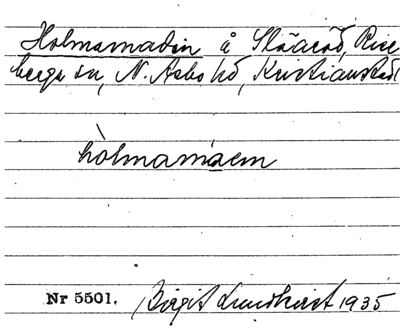 Holmamaden å Släaröd, Rise
berga sn, N. Asbo hd, Kristianstads
hòlmamáen
Nr 5501. Birgit Lundkvist 1935